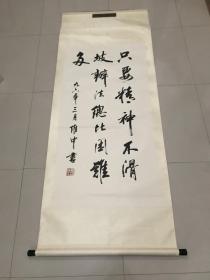 只要精神不滑
坡辦法總比困難
多
九六年三月 書